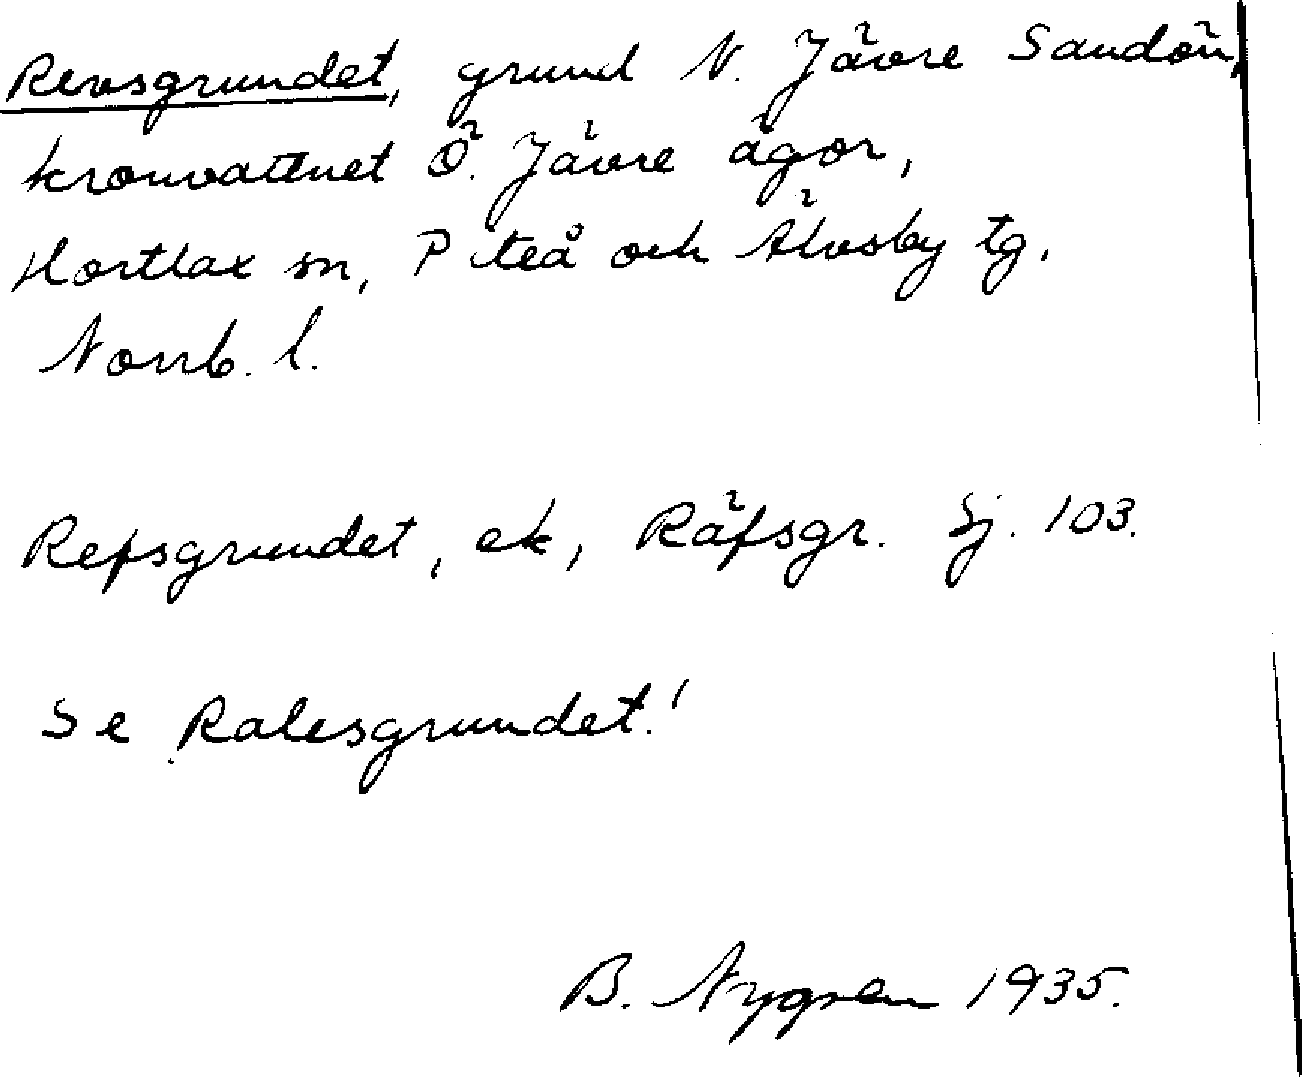 Revsgrundet, grund N. Jävre Sandön,
kronvattnet Ö. Jävre ägor,
Hortlax sn, Piteå och Älvsby tg,
Norrb. l.
Refsgrundet, ek, Räfsgr. Sj. 103.
Se Ralesgrundet!
B. Nygren 1935.